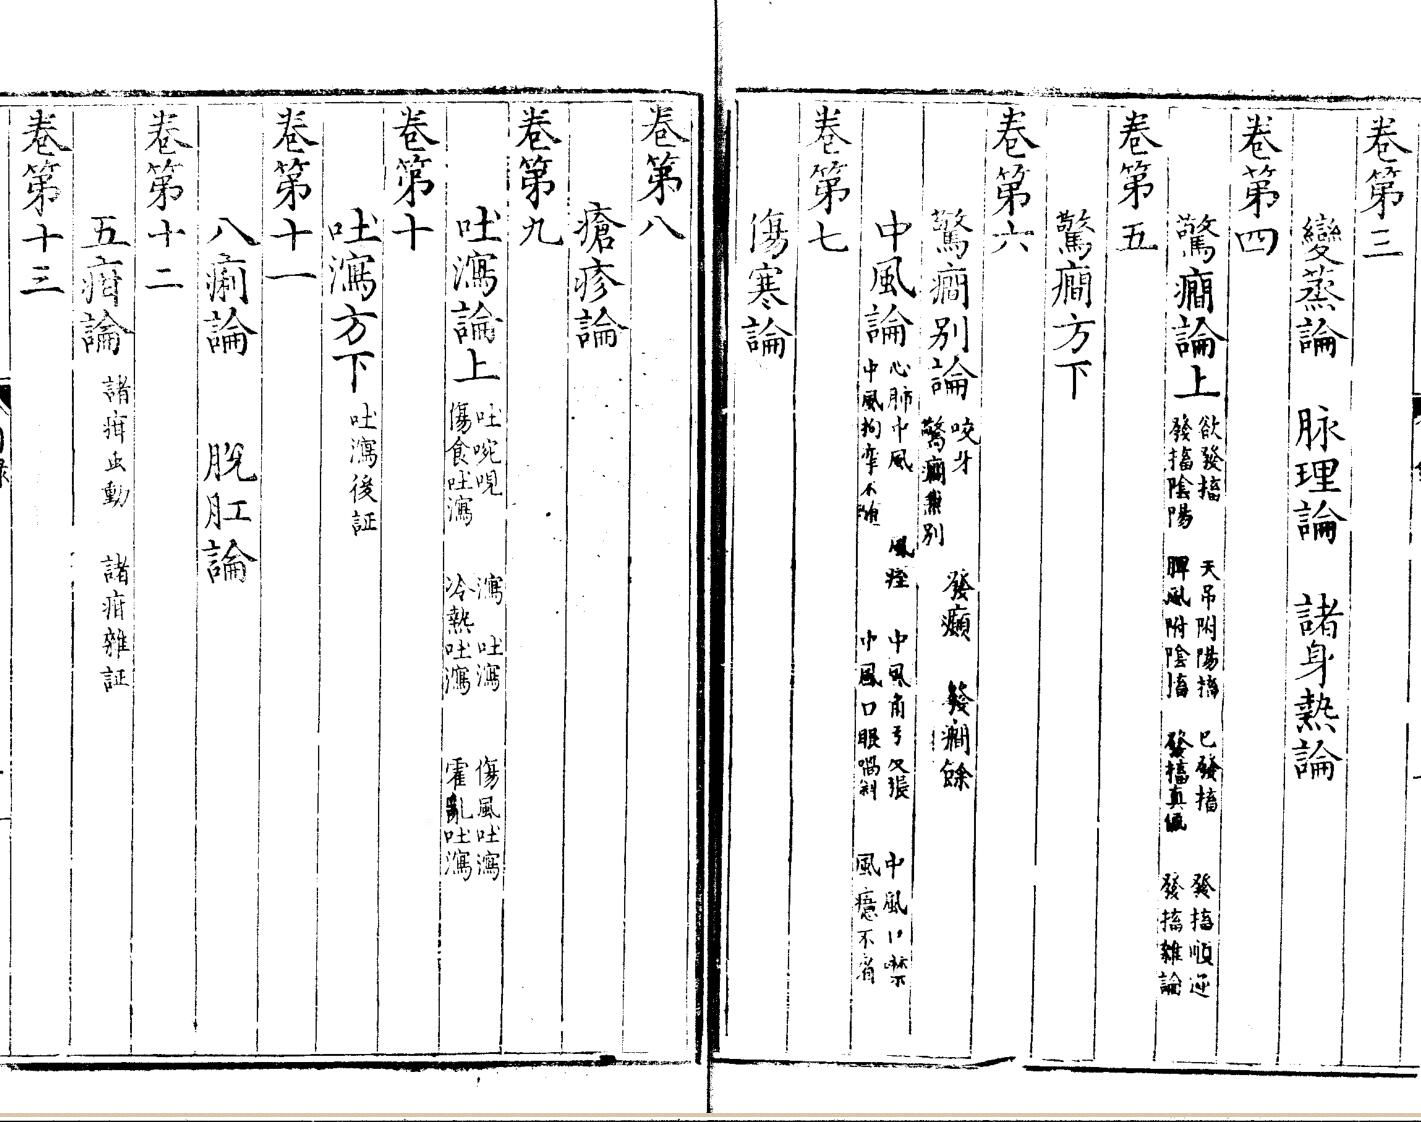 卷第三
變蒸論 脉理論 諸身熱論
卷第四
驚癇論上
欲發搐 天吊附陽搐 已發搐 發搐順逆
發搐陰陽 脾風附陰搐 發搐真偽 發搐雜論
卷第五
驚癇方下
卷第六
驚癇別論
咬牙 發癲 發癇餘
驚癇兼別
中風論
心肺中風 風痙 中風角弓反張 中風口噤
中風拘攣不隨 中風口眼喎斜 風癔不省
卷第七
傷寒論
卷第八
瘡疹論
卷第九
吐瀉論上
吐啘哯 瀉 吐瀉 傷風吐瀉
傷食吐瀉 冷熱吐瀉 霍亂吐瀉
卷第十
吐瀉方下 吐瀉後証
卷第十一
八痢論 脫肛論
卷第十二
五疳論 諸疳虫動 諸疳雜証
卷第十三